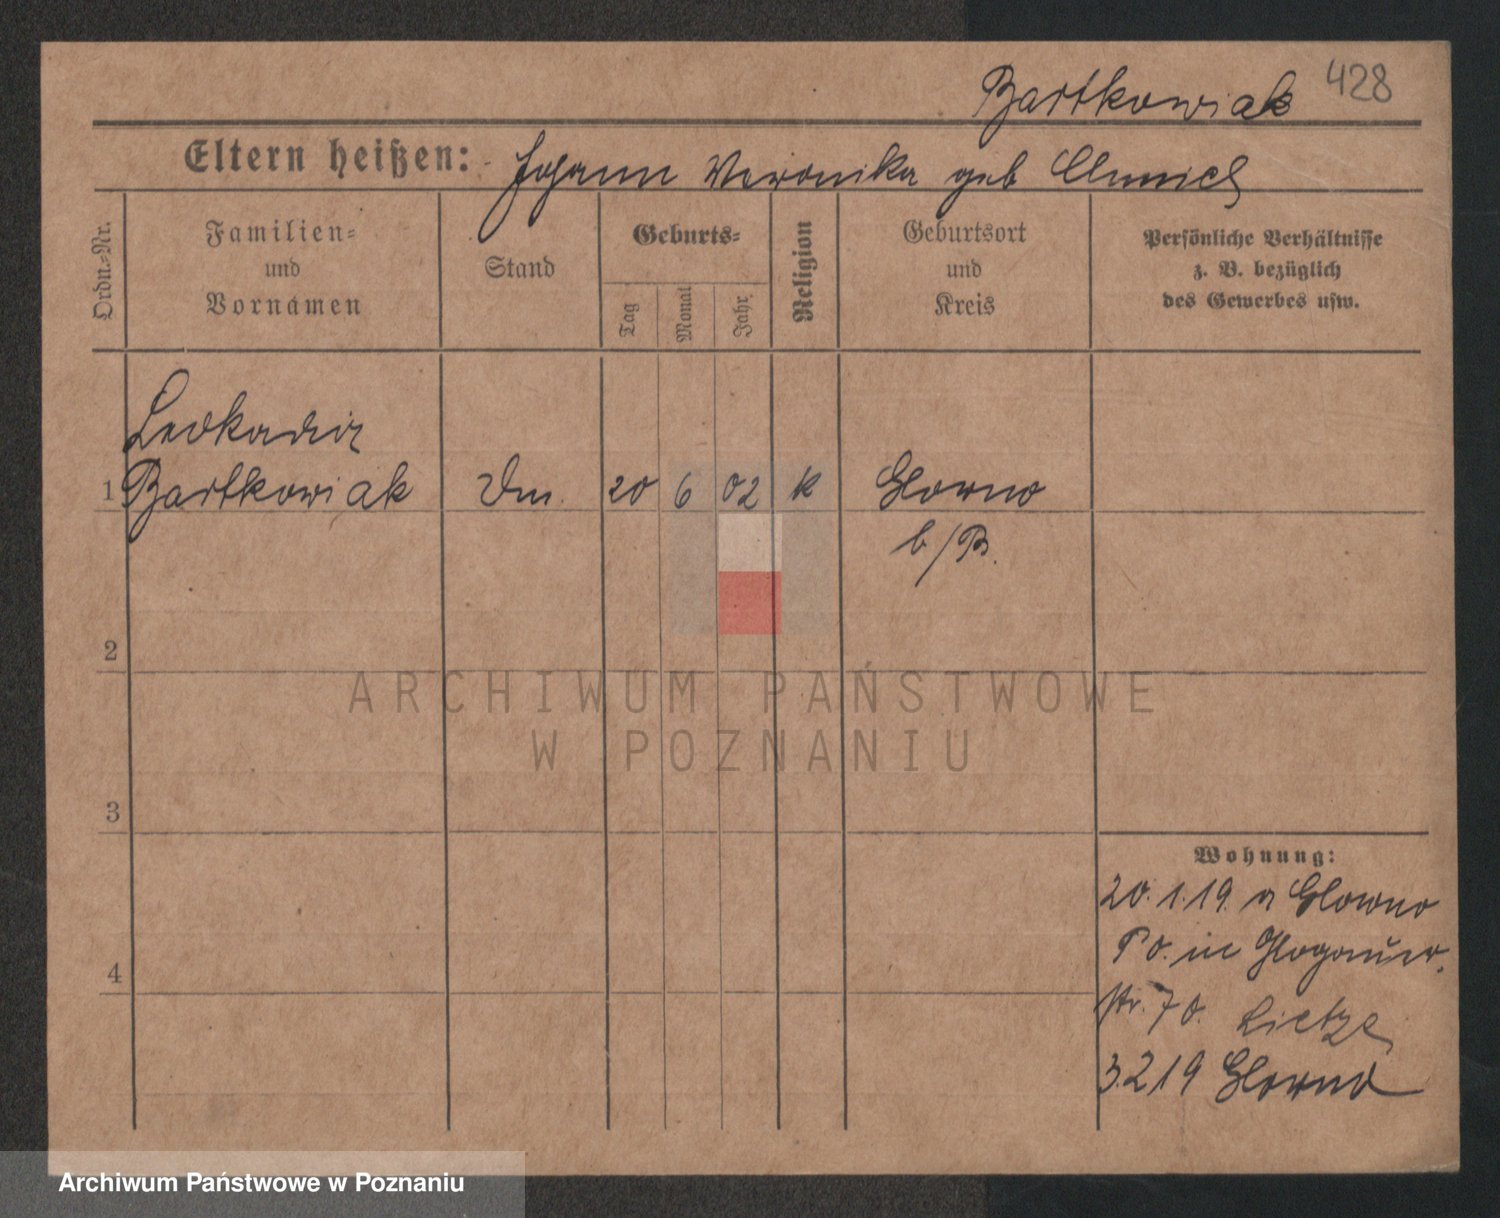 Bartkowiak 428
Eltern heißen: Johann Veronika geb
Ordn.-Nr.
Familien=
und
Vornamen
Stand
Geburts=
Tag
Monat
Jahr
Religion
Geburtsort
und
Kreis
Persönliche Verhältnisse
z. B. bezüglich
des Gewerbes usw.
Leokadia
1 Bartkowiak Dm. 20 6 02 k Glowno
b/P.
2
ARCHIWUM PAŃSTWOWE
W POZNANIU
3
4
Wohnung:
20.1.19. Glowno
in Glogauer
str. 70. Lietze
3.2 19 Glowno
Archiwum Państwowe w Poznaniu